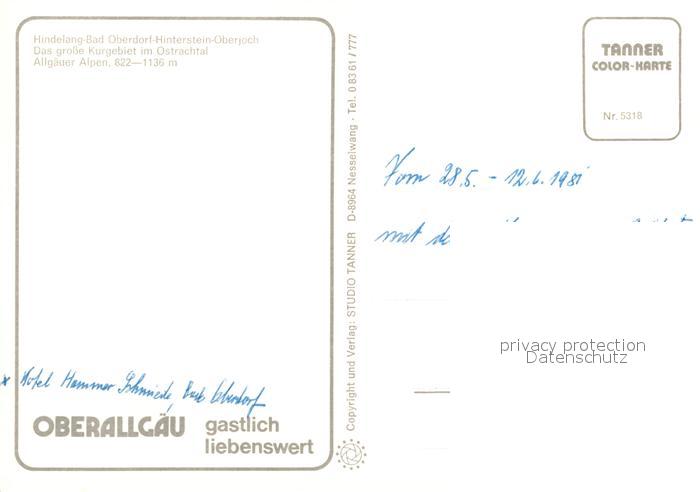 Hindelang-Bad Oberdorf-Hinterstein-Oberjoch
Das große Kurgebiet im Ostrachtal
Allgäuer Alpen, 822—1136 m
x Hotel Hammer Schmiede, Bad Oberdorf
OBERALLGÄU gastlich
liebenswert
Copyright und Verlag: STUDIO TANNER D-8964 Nesselwang · Tel. 0 83 61 / 777
TANNER
COLOR-KARTE
Nr. 5318
Vom 28.5. - 12.6.1981
mit
privacy protection
Datenschutz